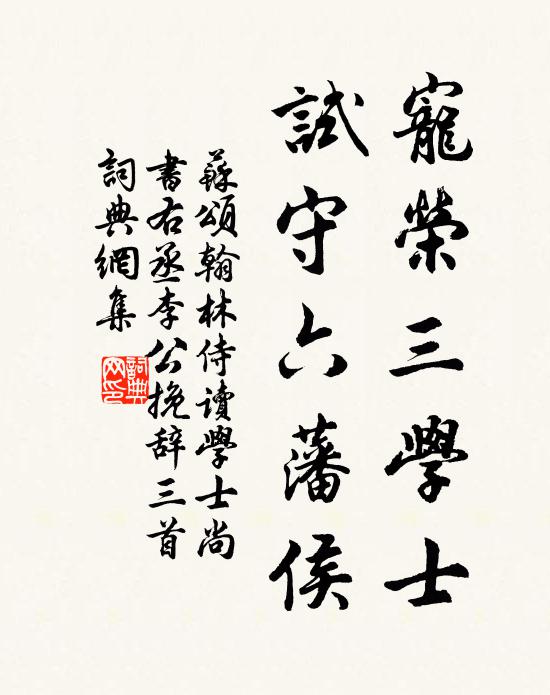 寵榮三學士
試守六藩侯
蘇頌翰林侍讀學士尚
書右丞李公挽辞三首
詞典網集
詞典網印